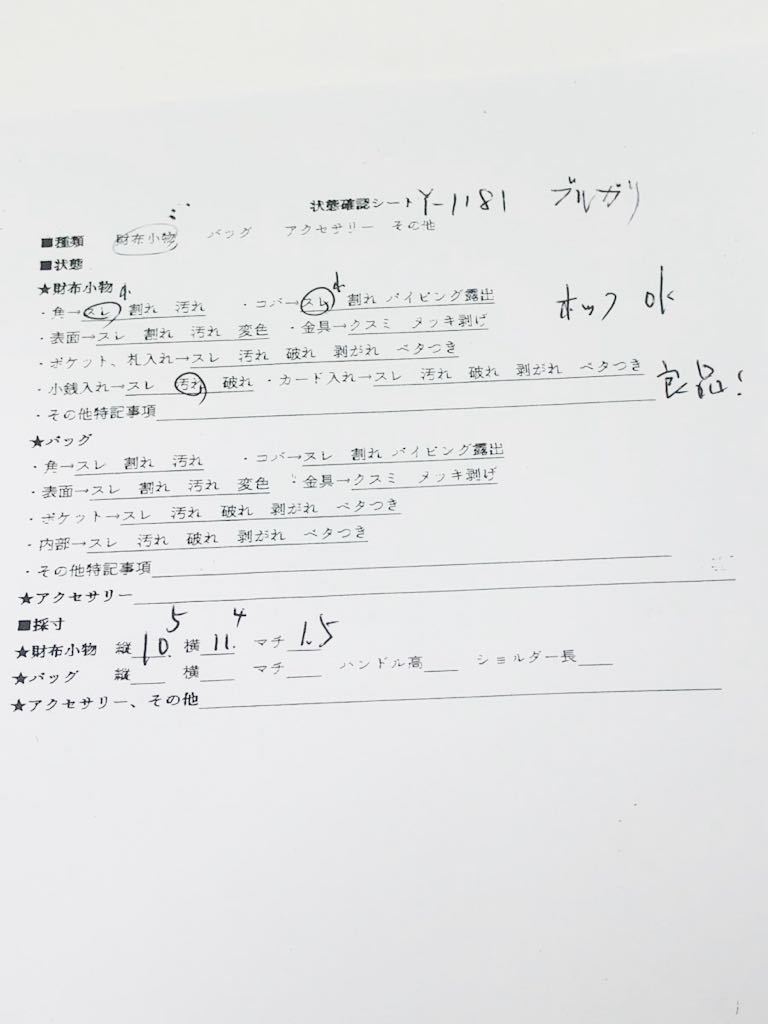 状態確認シート Y-1181 ブルガリ
■種類 財布小物 バッグ アクセサリー その他
■状態
★財布小物
・角→スレ 割れ 汚れ ・コバ→スレ 割れ パイピング露出
ホック OK
・表面→スレ 割れ 汚れ 変色 ・金具→クスミ メッキ剥げ
・ポケット、札入れ→スレ 汚れ 破れ 剥がれ ベタつき
・小銭入れ→スレ 汚れ 破れ ・カード入れ→スレ 汚れ 破れ 剥がれ ベタつき
良品!
・その他特記事項
★バッグ
・角→スレ 割れ 汚れ ・コバ→スレ 割れ パイピング露出
・表面→スレ 割れ 汚れ 変色 ・金具→クスミ メッキ剥げ
・ポケット→スレ 汚れ 破れ 剥がれ ベタつき
・内部→スレ 汚れ 破れ 剥がれ ベタつき
・その他特記事項
★アクセサリー
■採寸
★財布小物 縦 10.5 横 11.4 マチ 1.5
★バッグ 縦 横 マチ ハンドル高 ショルダー長
★アクセサリー、その他